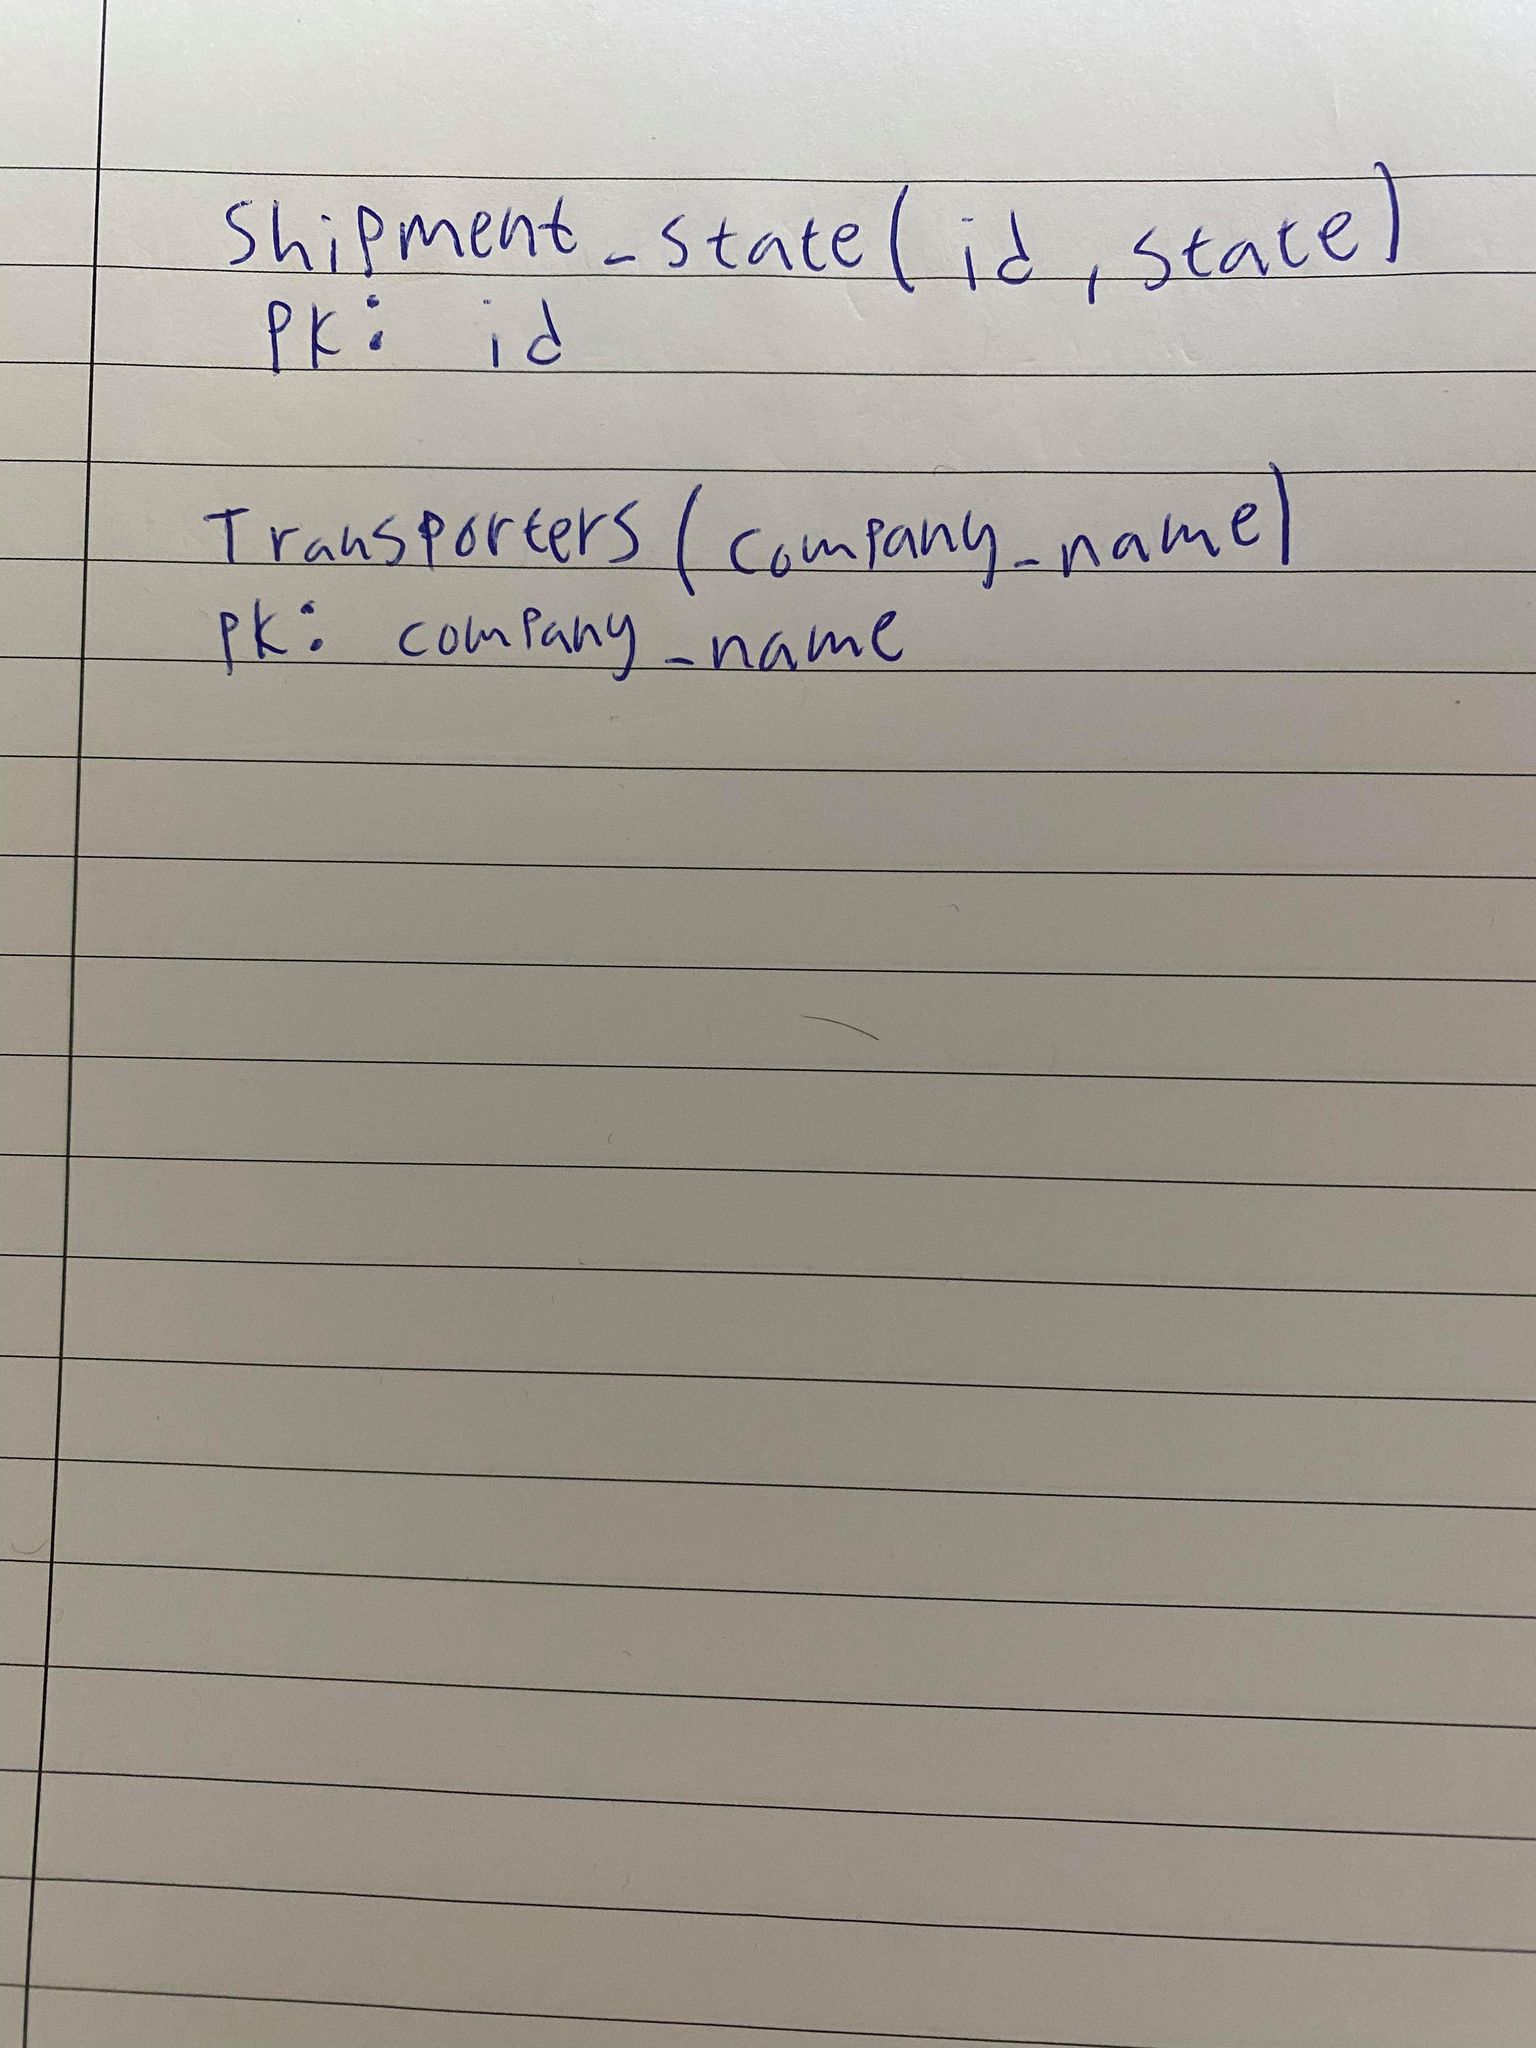 Shipment_state(id, state)
PK: id
Transporters(company_name)
PK: company_name